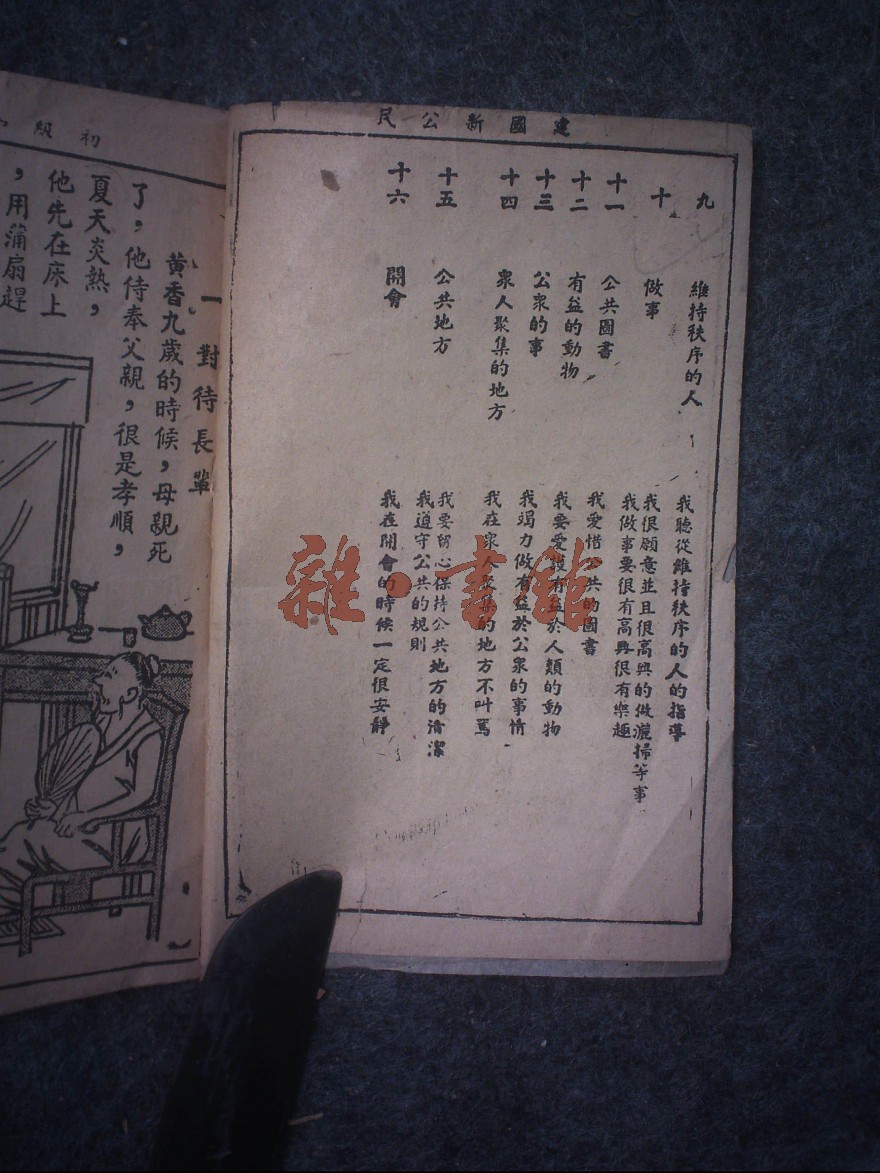 建國新公民
九 維持秩序的人 我聽從維持秩序的人的指導
十 做事 我很願意並且很高興的做灑掃等事
我做事要很有高興很有樂趣
十一 公共圖書 我愛惜公共的圖書
十二 有益的動物 我要愛護有益於人類的動物
十三 公衆的事 我竭力做有益於公衆的事情
十四 衆人聚集的地方 我在衆人聚集的地方不叫罵
十五 公共地方 我要留心保持公共地方的清潔
我遵守公共的規則
十六 開會 我在開會的時候一定很安靜
初級
一 對待長輩
黃香九歲的時候，母親死
了，他侍奉父親，很是孝順，
夏天炎熱，
他先在床上
，用蒲扇趕
雜·書館